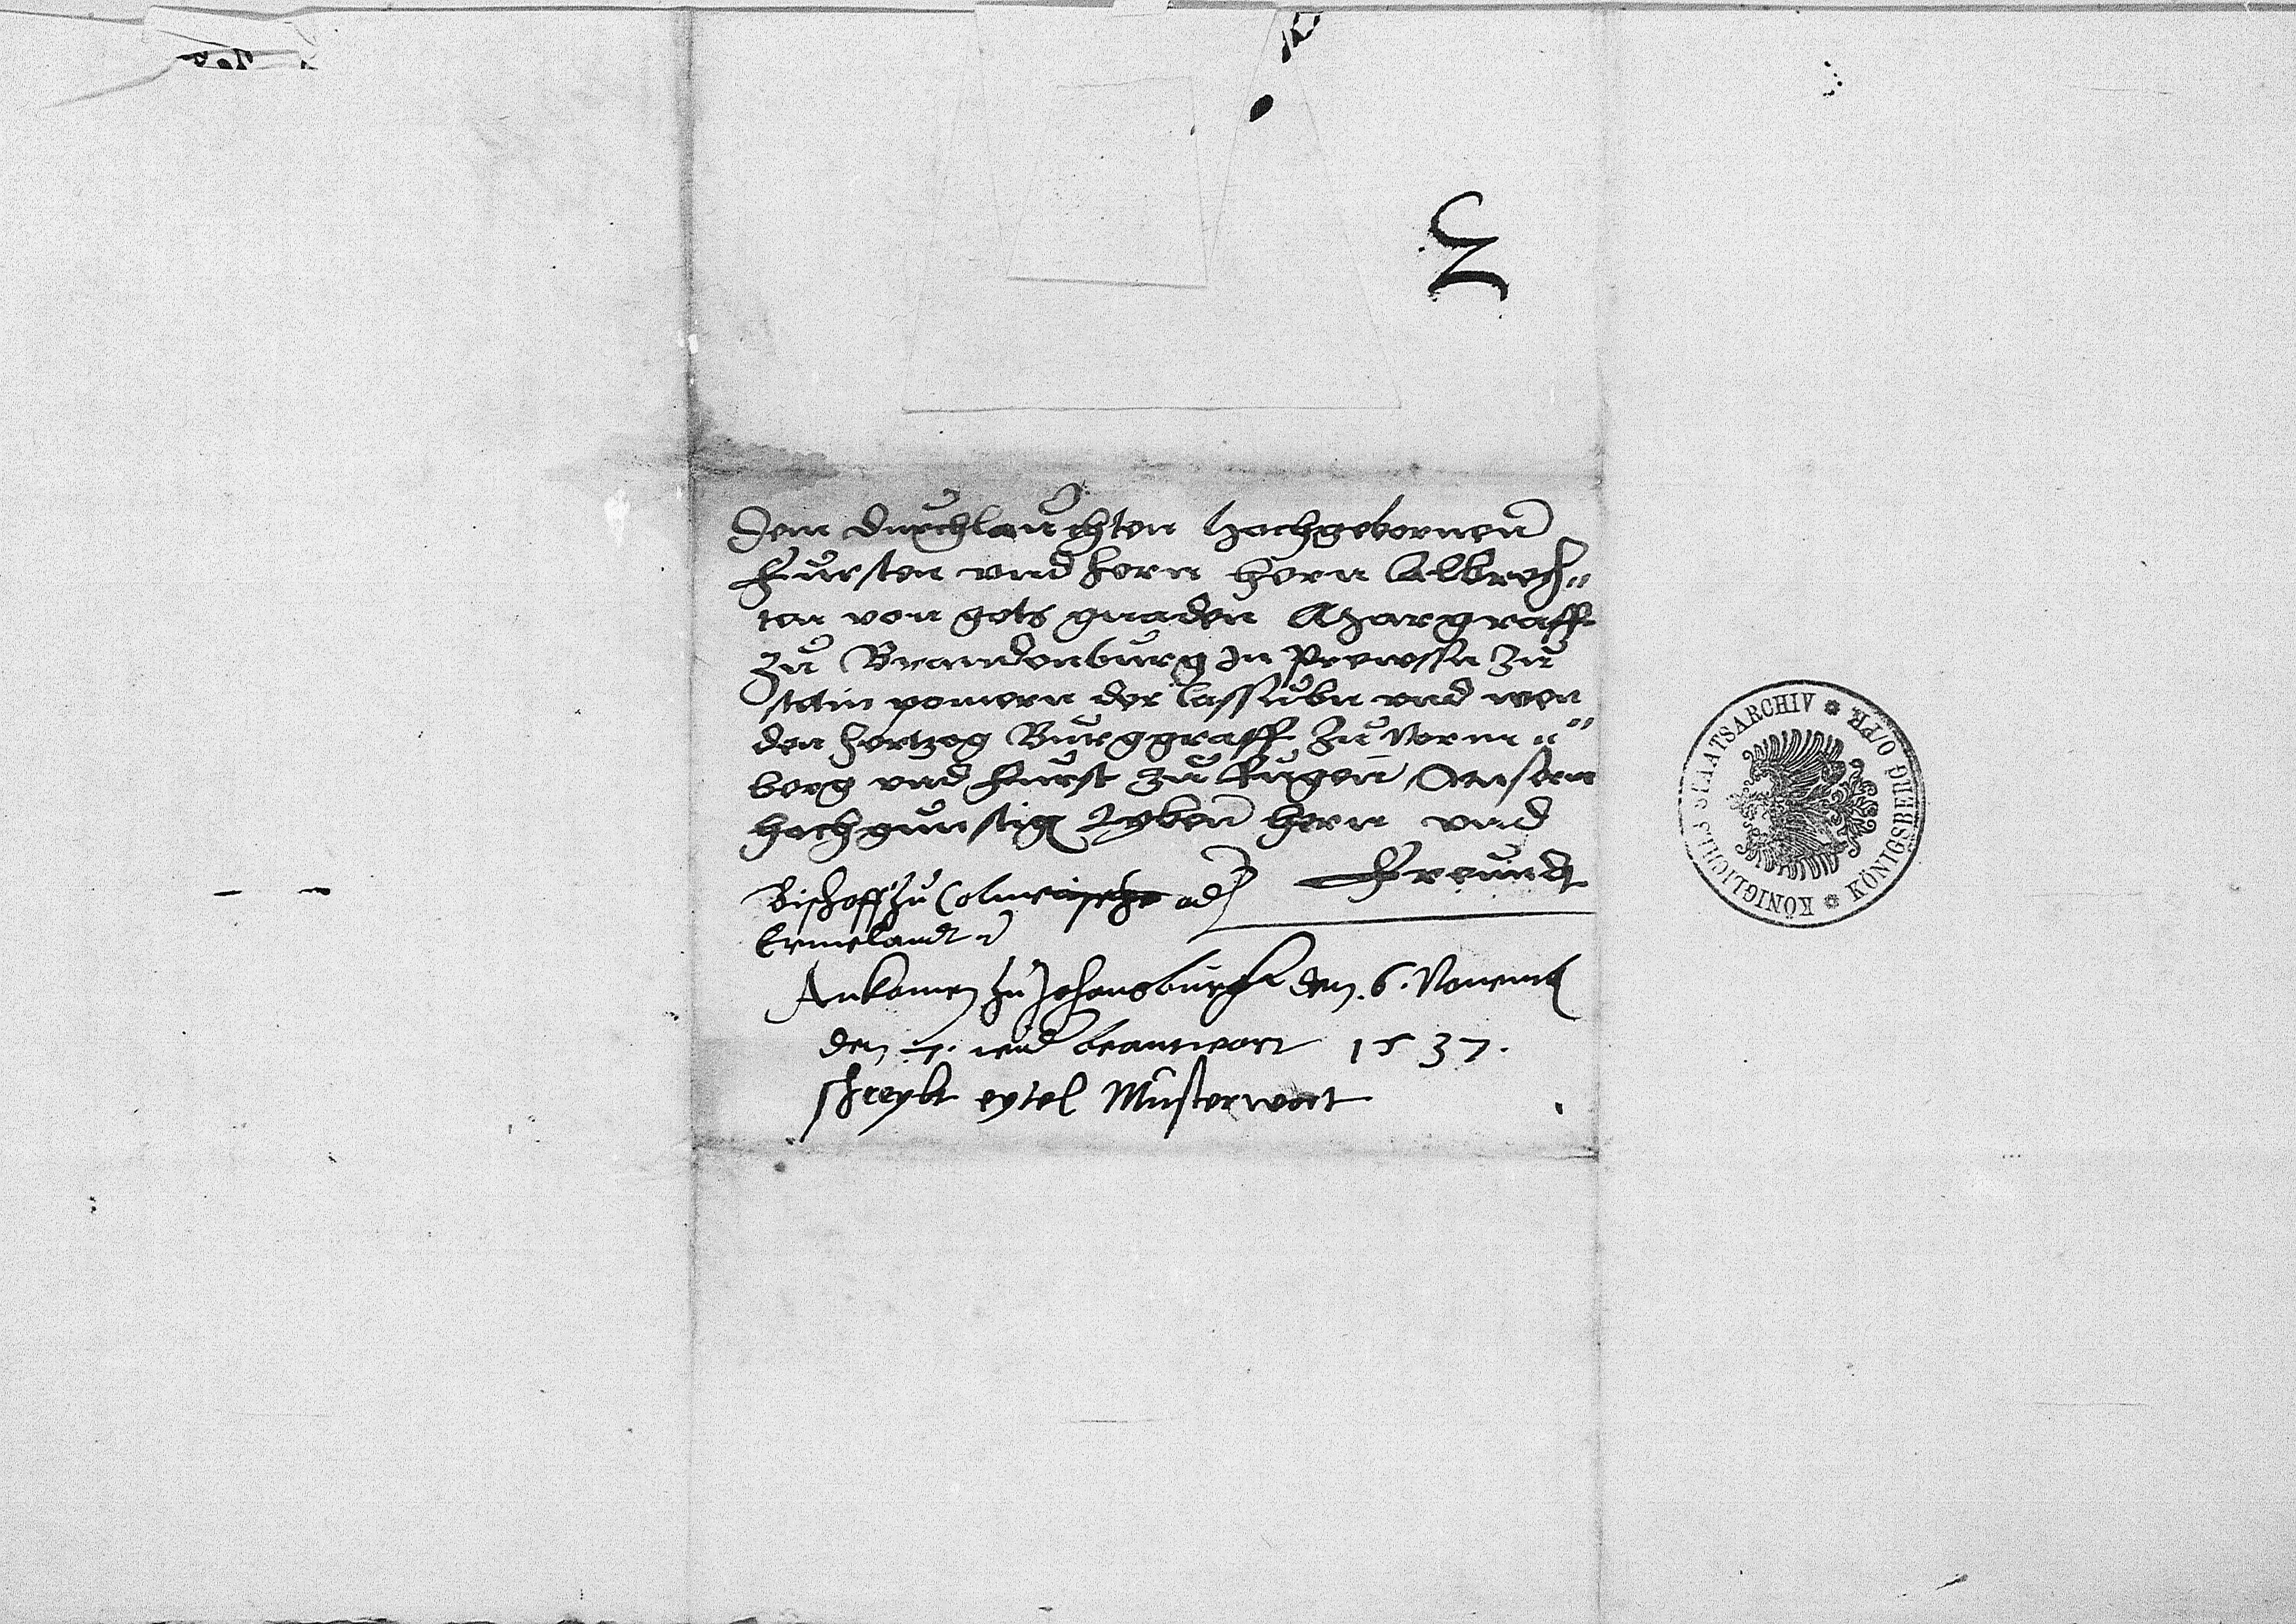 Dem durchlauchten hochgebornen
Fursten vnd hern hern Albrech„
ten von gots gnaden Margraff
zu Brandenburg In prewssn zu
stetin pomern der Cassubn vnd wen
den hertzog Burggraff zu Norm„
berg vnd furst zu Rugen Unserm
hochgunstig lyben hern vnd
Freundt
Bischoff zu Colm
Ermelandt
Ankomen zu Johansburgk den .6. Nouemb
den .7. beantwort 1537.
schreybt eytel Musterwort
KÖNIGLICHES STAATSARCHIV * KÖNIGSBERG O/PR *